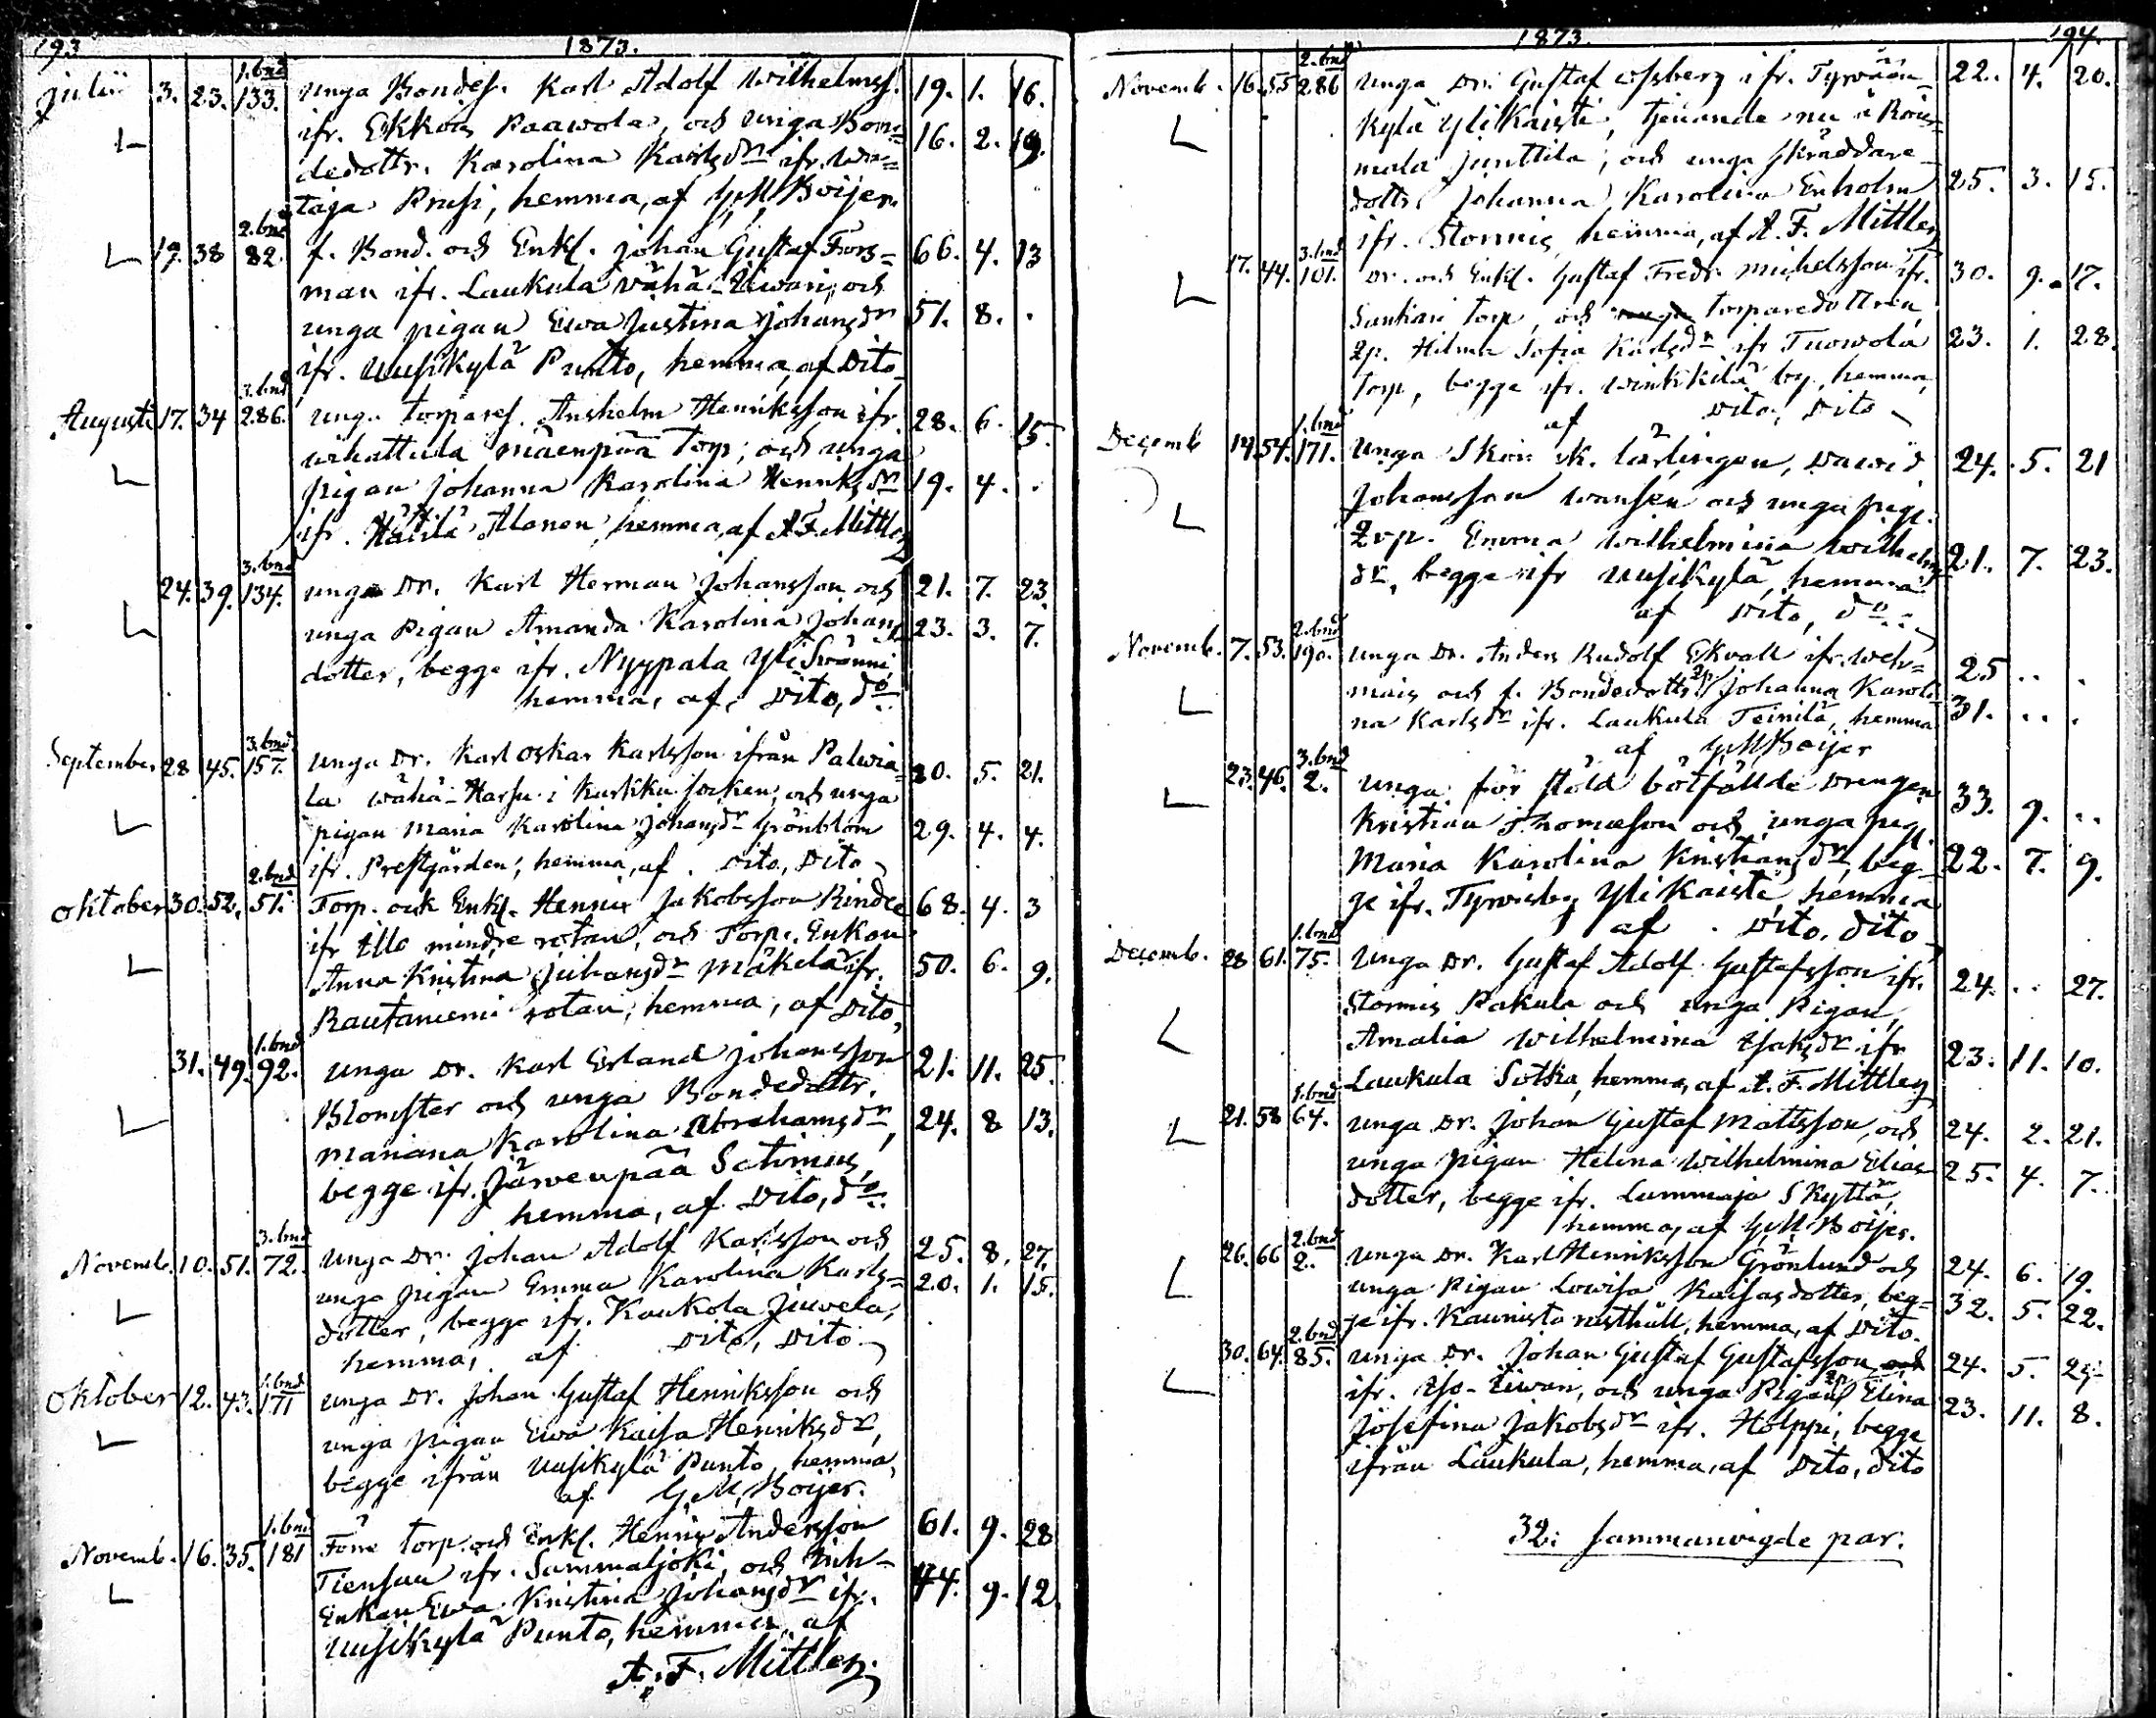 193
1873.
Julii 3. 23. 1.bnd 133. unga Bondes. Karl Adolf Wilhelmss. 19. 1. 16.
ifr. Ekkois Paawola, och unga Bon=
dedottr. Karolina Karlsdr ifr. 16. 2. 19.
taja Prusi, hemma, af G.M. Boijer.
19. 38 2.bnd 82. f. Bond. och Enkl. Johan Gustaf Fors= 66. 4. 13
man ifr. Laukula Wähä-Liwari, och
unga pigan Ewa Justina Johansdr 51. 8. .
ifr. Uusikylä Punto, hemma, af Dito
Augusti 17. 34 3.bnd 286. unga torpares. Anshelm Henriksson ifr. 28. 6. 15.
wihattula mäenpää Torp; och unga
pigan Johanna Karolina Henriksdr 19. 4. .
ifr. Häisilä Alanen, hemma, af A.F. Mittler
24. 39. 3.bnd 134. unga Dr. Karl Herman Johansson och 21. 7. 23.
unga Pigan Amanda Karolina Johans 23. 3. 7.
dotter, begge ifr. Nyypala Yli Swänni
hemma, af, Dito, do.
September 28 45. 3.bnd 157. unga Dr. Karl Oskar Karlsson ifrån Palwia= 20. 5. 21.
la Wähä-Harju i Karkku socken, och unga
pigan Maria Karolina Johansdr Grönblom 29. 4. 4.
ifr. Prestgården; hemma, af Dito, Dito
Oktober 30. 52. 2.bnd 51. Torp. och Enkl. Henric Jakobsson Rindee 68. 4. 3
ifr Illo mindre rotan, och Torp. Enkan
Anna Kristina Juhansdr Mäkelä ifr. 50. 6. 9.
Rautaniemi rotan, hemma, af Dito,
31. 49. 1.bnd 92. unga Dr. Karl Erland Johansson 21. 11. 25.
Blomster och unga Bondedottr.
Mariana Karolina Abrahamsdr, 24. 8 13.
begge ifr. Järwenpää Sctrimus,
hemma, af Dito, do.
Novemb. 10. 51. 3.bnd 72. unga Dr. Johan Adolf Karlsson och 25. 8. 27.
unga pigan Emma Karolina Karls= 20. 1. 15.
dotter, begge ifr. Kaukola Juwela,
hemma, af Dito, Dito
Oktober 12. 43. 1.bnd 171 unga Dr. Johan Gustaf Henriksson och
unga pigan Ewa Kaisa Henriksdr,
begge ifrån Uusikylä Punto, hemma,
af G.M. Boijer.
Novemb. 16. 35. 1.bnd 181 Förre torp. och Enkl. Henric Andersson 61. 9. 28
Tiensuu ifr. Sammaljoki, och Inh-
Enkan Ewa Kristina Johansdr ifr. 44. 9. 12.
Uusikylä Punto, hemma, af
A. F. Mittler.
1873.
194.
Novemb. 16. 55 2.bnd 286 unga Dr. Gustaf Wssberg ifr. Tyrwään= 22. 4. 20.
kylä Ylikaisti, tjenande nu å Rois=
mala Junttila; och unga skräddare
dottr. Johanna Karolina Enholm 25. 3. 15.
ifr. Stormis, hemma, af A. F. Mittler
17. 44. 3.bnd 101. Dr. och Enkl. Gustaf Fredr. Michelsson ifr. 30. 9. 17.
Sankari torp, och torparedottren,
2p. Hilma Sofia Karlsdr ifr Tuowola 23. 1. 28.
Torp, begge ifr. Winkkilä by, hemma,
af Dito, Dito
Decemb 14. 54. 1.bnd 171. Unga Skom. lärlingen, Dawid 24. 5. 21
Johansson Wansen och unga pig.
2vp. Emma Wilhelmina Wilhelms 21. 7. 23.
dr, begge ifr Uusikylä, hemma
af Dito, do.
Novemb. 7. 53. 2.bnd 190. unga Dr. Anders Rudolf Ekvall ifr. Weh= 25 . . .
mais och f. Bondedottr. 2p Johanna Karoli
na Karlsdr ifr. Laukula Teinilä, hemma 31. . . .
af G.M. Boijer
23. 46. 3.bnd 2. unga för stöld bötfällde Drengen 33. 9. . .
Kristian Thomasson och unga pig.
Maria Karolina Kristiansdr, beg= 22. 7. 9.
ge ifr. Tyrvisby Ylikaisti, hemma
af Dito, Dito
Decemb. 28 61. 1.bnd 75. Unga Dr. Gustaf Adolf Gustafsson ifr. 24. . . 27.
Stormis Pakula och unga Pigan,
Amalia Wilhelmina Isaksdr ifr 23. 11. 10.
Laukula Sotka, hemma, af A. F. Mittler
21. 58 1.bnd 64. unga Dr. Johan Gustaf Mattsson, och 24. 2. 21.
unga pigan Helena Wilhelmina Elias 25. 4. 7.
dotter, begge ifr. Lummaja Skyttä,
hemma, af G.M. Boijer.
26. 66 2.bnd 2. unga Dr. Karl Henriksson Grönlund och 24. 6. 19.
unga Pigan Lowisa Kaisasdotter, beg= 32. 5. 22.
ge ifr. Kaunisto rusthåll, hemma, af Dito.
30. 64. 2.bnd 85. unga Dr. Johan Gustaf Gustafsson och 24. 5. 29
ifr. Iso-Liwari, och unga Pigan 2p Elina
Josefina Jakobsdr ifr. Holppi, begge 23. 11. 8.
ifrån Laukula, hemma, af Dito, Dito
32: sammanvigde par.